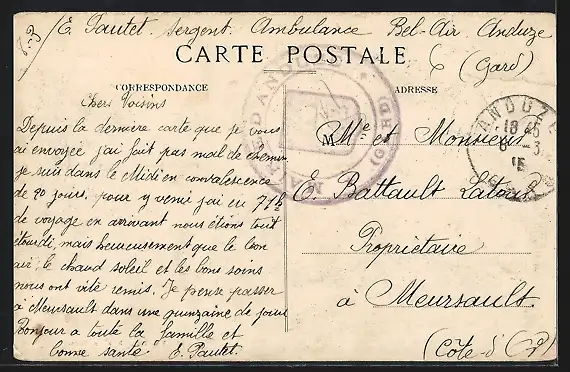 E. Pautet. Sergent. Ambulance Bel-Air Anduze
(Gard)
CARTE POSTALE
CORRESPONDANCE
ADRESSE
Chers Voisins
Depuis la dernière carte que je vous
ai envoyée j'ai fait pas mal de chemin
je suis dans le Midi en convalescence
de 20 jours. pour y venir j'ai eu 71h
de voyage en arrivant nous étions tout
étourdi, mais heureusement que le bon
air, le chaud soleil et les bons soins
nous ont vite remis. Je pense passer
à Meursault dans une quinzaine de jours
Bonjour a toute la famille et
bonne santé E. Pautet.
M
Me et Monsieur
E. Battault Latour
Propriétaire
à Meursault.
(Côte-d'Or)
ANDUZE
15